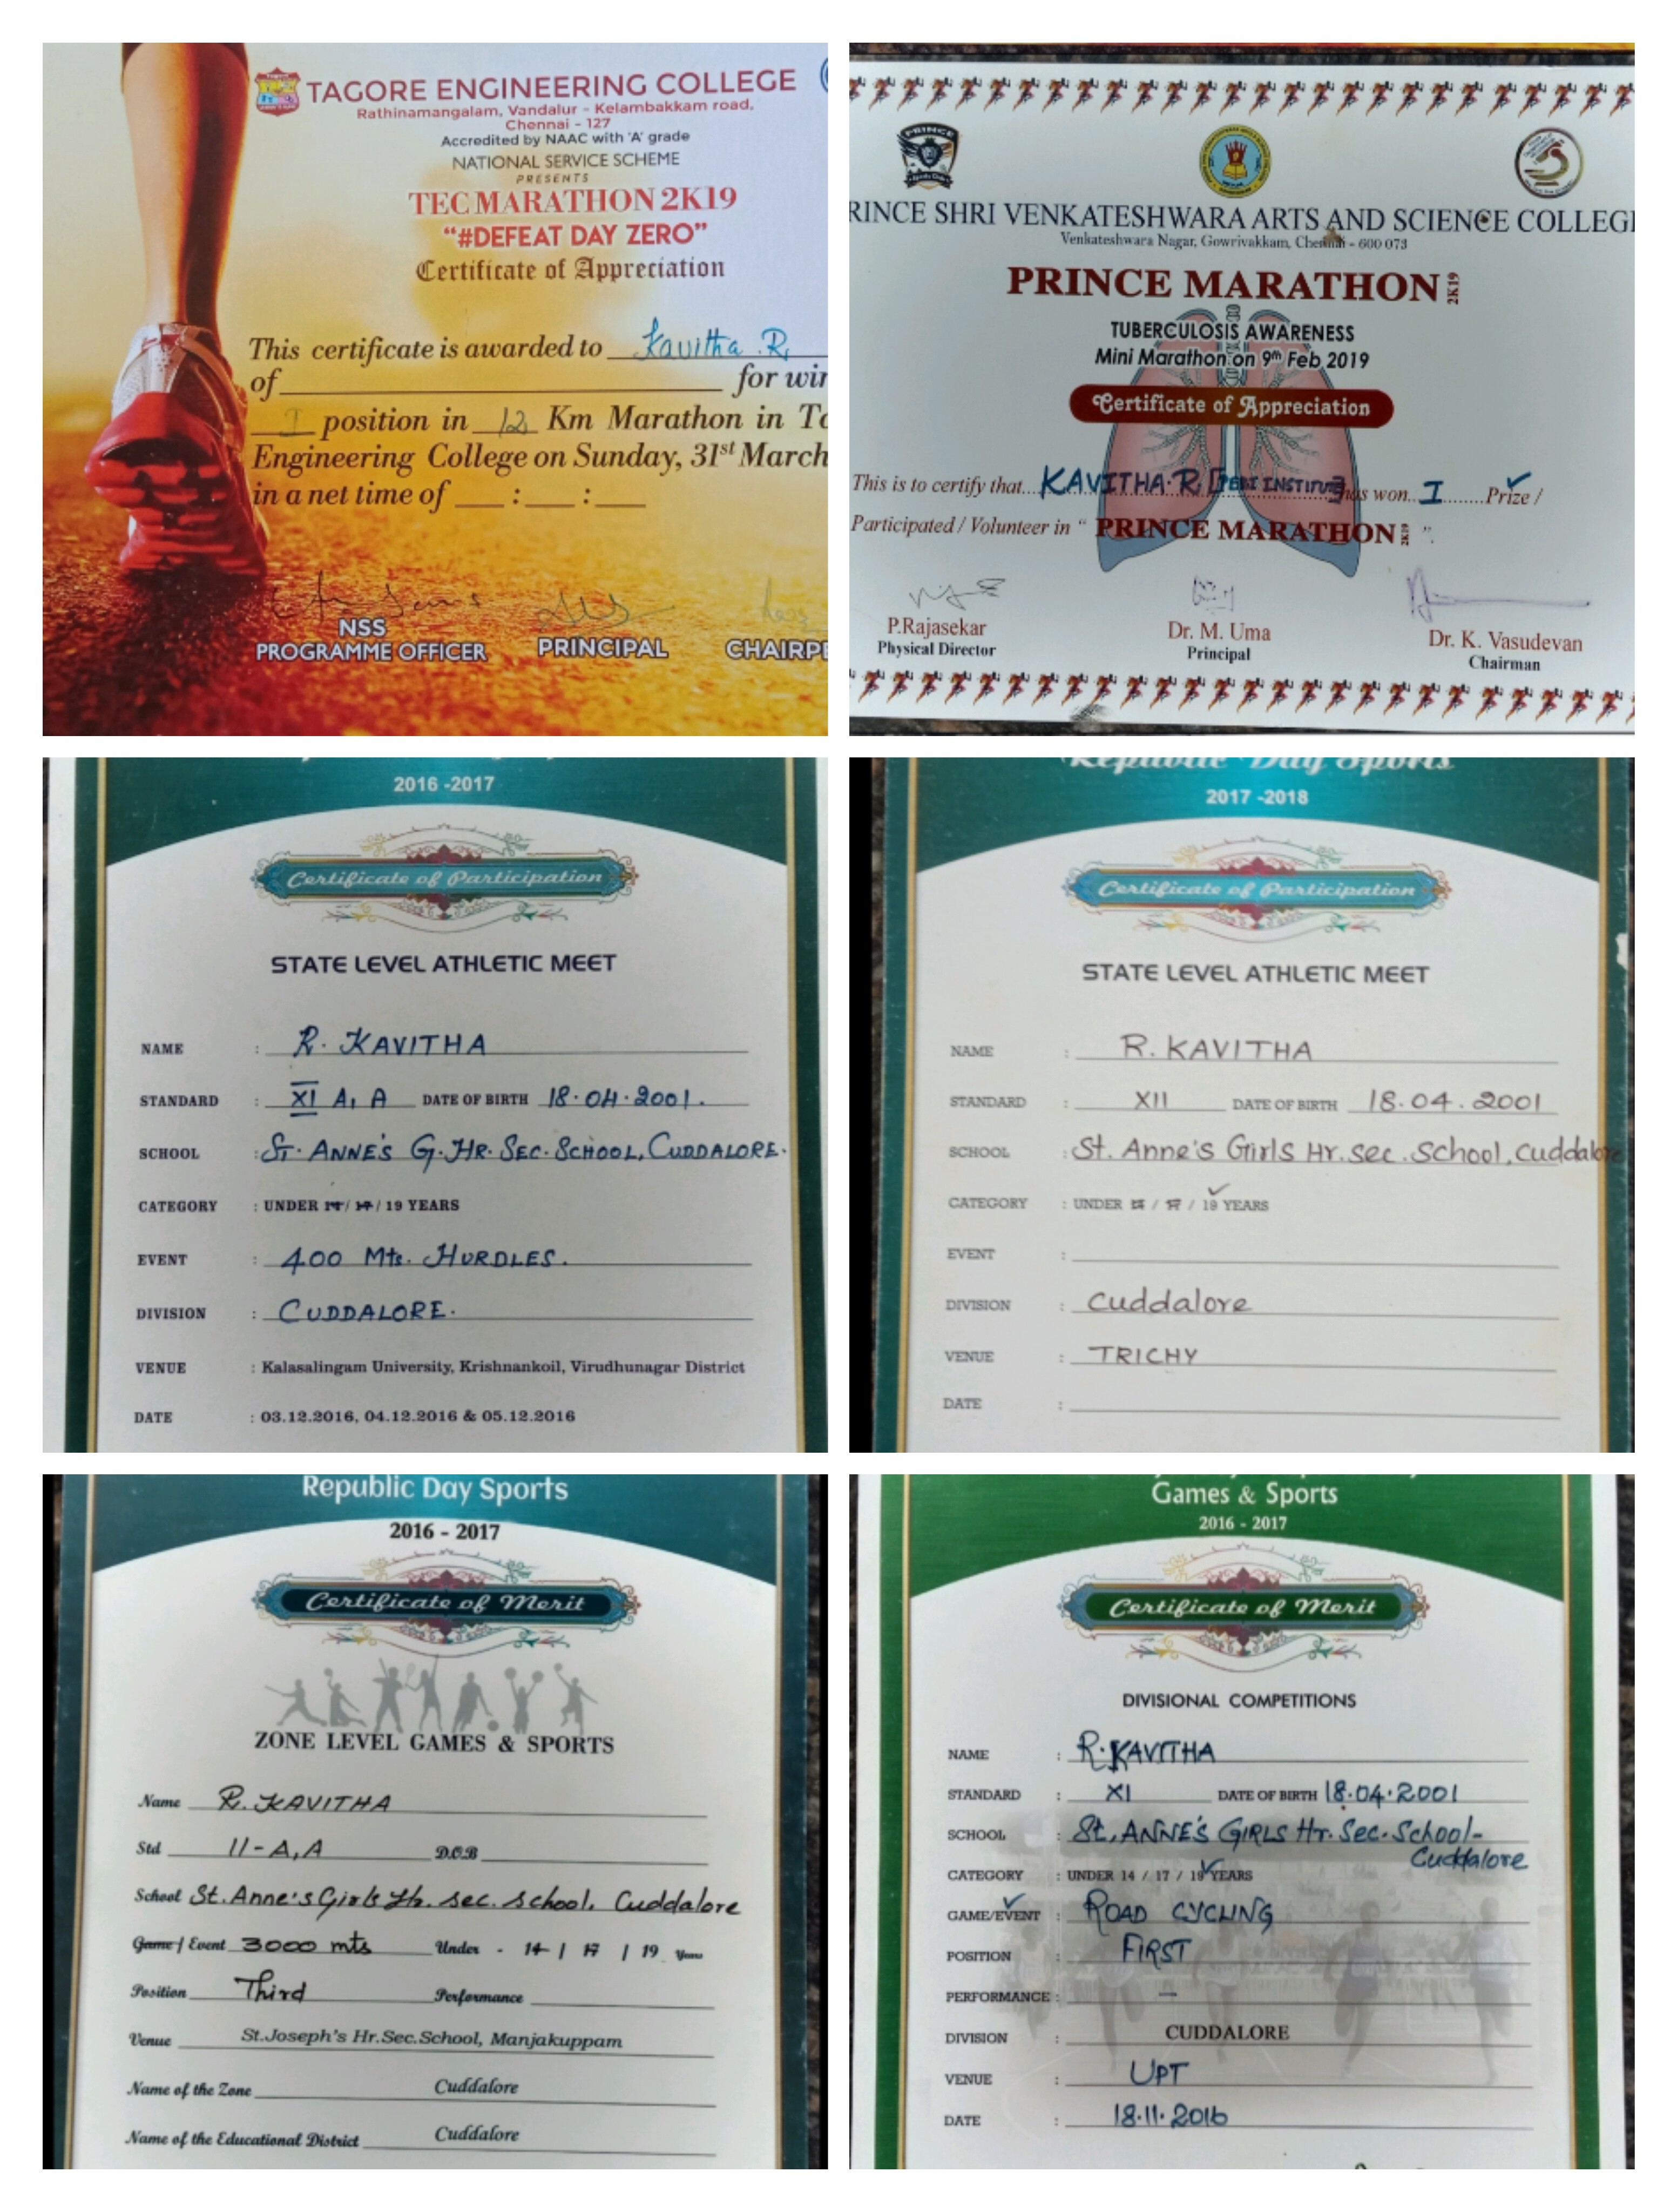 TAGORE ENGINEERING COLLEGE
Rathinamangalam, Vandalur - Kelambakkam road,
Chennai - 127
Accredited by NAAC with 'A' grade
NATIONAL SERVICE SCHEME
PRESENTS
TEC MARATHON 2K19
"#DEFEAT DAY ZERO"
Certificate of Appreciation
This certificate is awarded to Kavitha .R.
of for win
I position in 12 Km Marathon in Ta
Engineering College on Sunday, 31st March
in a net time of : :
NSS
PROGRAMME OFFICER PRINCIPAL CHAIRPE
PRINCE
RINCE SHRI VENKATESHWARA ARTS AND SCIENCE COLLEGE
Venkateshwara Nagar, Gowrivakkam, Chennai - 600 073
PRINCE MARATHON 2K19
TUBERCULOSIS AWARENESS
Mini Marathon on 9th Feb 2019
Certificate of Appreciation
This is to certify that KAVITHA.R. INSTITUTE has won I Prize /
Participated / Volunteer in " PRINCE MARATHON 2K19 ".
P.Rajasekar
Physical Director
Dr. M. Uma
Principal
Dr. K. Vasudevan
Chairman
2016 -2017
Certificate of Participation
STATE LEVEL ATHLETIC MEET
NAME : R. KAVITHA
STANDARD : XI A, A DATE OF BIRTH 18.04.2001.
SCHOOL : ST. ANNE'S G. HR. SEC. SCHOOL, CUDDALORE.
CATEGORY : UNDER 14 / 17 / 19 YEARS
EVENT : 400 Mts. HURDLES.
DIVISION : CUDDALORE.
VENUE : Kalasalingam University, Krishnankoil, Virudhunagar District
DATE : 03.12.2016, 04.12.2016 & 05.12.2016
Republic Day Sports
2017 -2018
Certificate of Participation
STATE LEVEL ATHLETIC MEET
NAME : R. KAVITHA
STANDARD : XII DATE OF BIRTH 18.04.2001
SCHOOL : St. Anne's Girls Hr. sec. School, Cuddalore
CATEGORY : UNDER 14 / 17 / 19 YEARS
EVENT :
DIVISION : Cuddalore
VENUE : TRICHY
DATE :
Republic Day Sports
2016 - 2017
Certificate of Merit
ZONE LEVEL GAMES & SPORTS
Name R. KAVITHA
Std 11-A, A D.O.B
School St. Anne's Girls Hr. sec. school, Cuddalore
Game / Event 3000 mts Under - 14 / 17 / 19 Years
Position Third Performance
Venue St.Joseph's Hr.Sec.School, Manjakuppam
Name of the Zone Cuddalore
Name of the Educational District Cuddalore
Games & Sports
2016 - 2017
Certificate of Merit
DIVISIONAL COMPETITIONS
NAME : R. KAVITHA
STANDARD : XI DATE OF BIRTH 18.04.2001
SCHOOL : St. ANNE'S GIRLS Hr. Sec. School-
Cuddalore
CATEGORY : UNDER 14 / 17 / 19 YEARS
GAME/EVENT : ROAD CYCLING
POSITION : FIRST
PERFORMANCE : -
DIVISION : CUDDALORE
VENUE : UPT
DATE : 18.11.2016